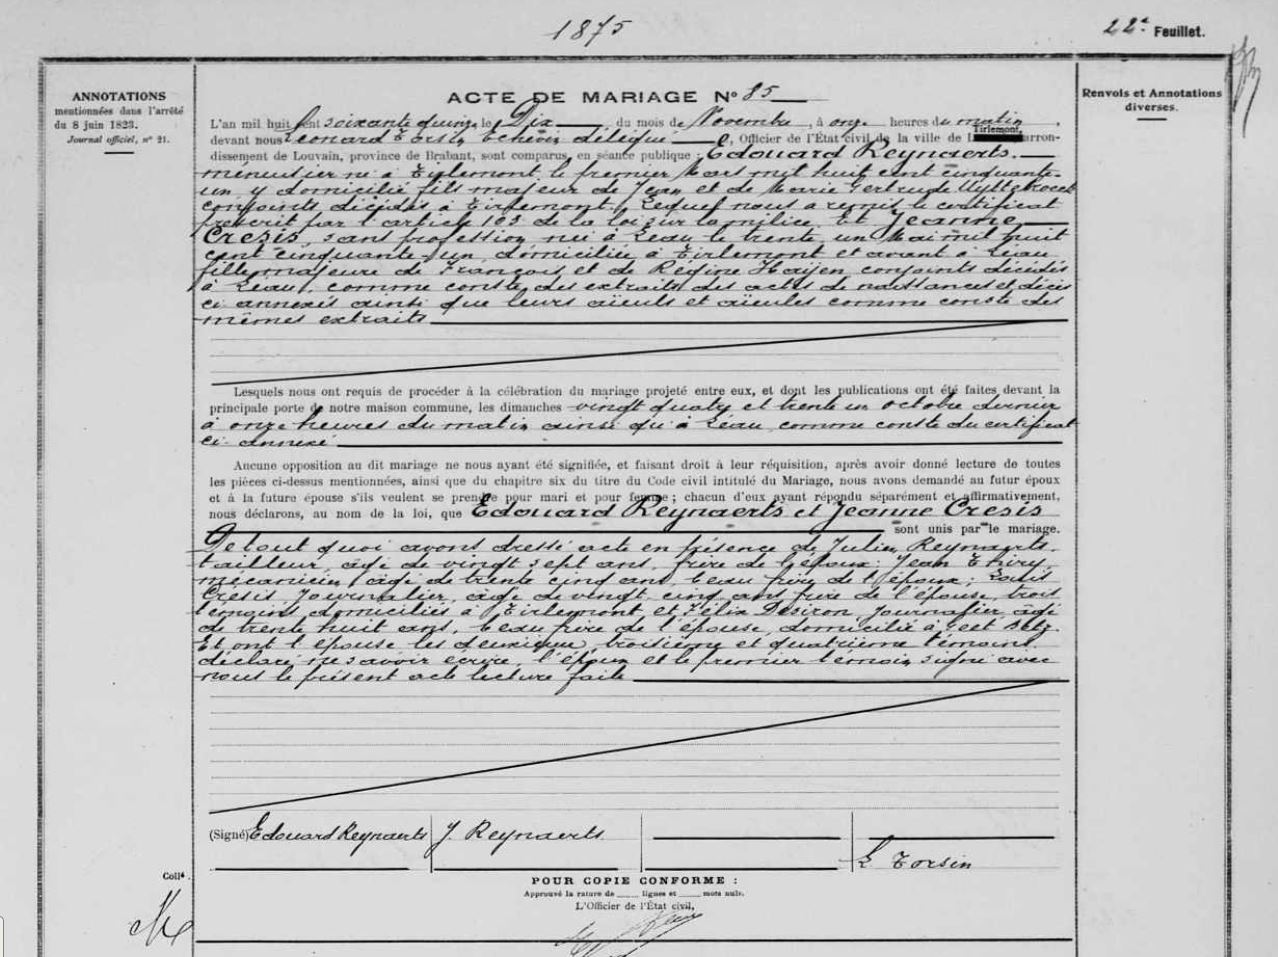 1875
22e Feuillet.
ANNOTATIONS
mentionnées dans l'arrêté
du 8 juin 1823.
Journal officiel, n° 21.
Renvois et Annotations
diverses.
ACTE DE MARIAGE N° 85
L'an mil huit cent soixante quinze le Dix, du mois de Novembre, à onze heures du matin,
devant nous Leonard Torsin Echevin délégué, Officier de l'État civil de la ville de Tirlemont, arron-
dissement de Louvain, province de Brabant, sont comparus, en séance publique : Edouard Reynaerts.
menuisier né à Tirlemont le premier Mars mil huit cent cinquante-
un y domicilié fils majeur de Jean et de Marie Gertrude Uyttebroeck
conjoints décédés à Tirlemont, Lequel nous a remis le certificat
prescrit par l'article 103 de la loi sur la milice, Et Jeanne
Cresis, sans profession née à Léau le trente un Mai mil huit
cent cinquante-un, domiciliée à Tirlemont et avant à Léau,
fille majeure de François et de Regine Haijen conjoints décédés
à Léau, comme conste des extraits des actes de naissances et décès
ci annexés ainsi que leurs aïeuls et aïeules comme conste des
mêmes extraits
Lesquels nous ont requis de procéder à la célébration du mariage projeté entre eux, et dont les publications ont été faites devant la
principale porte de notre maison commune, les dimanches vingt quatre et trente un octobre dernier
à onze heures du matin ainsi qu'à Léau, comme conste du certificat
ci-annexé
Aucune opposition au dit mariage ne nous ayant été signifiée, et faisant droit à leur réquisition, après avoir donné lecture de toutes
les pièces ci-dessus mentionnées, ainsi que du chapitre six du titre du Code civil intitulé du Mariage, nous avons demandé au futur époux
et à la future épouse s'ils veulent se prendre pour mari et pour femme ; chacun d'eux ayant répondu séparément et affirmativement,
nous déclarons, au nom de la loi, que Edouard Reynaerts et Jeanne Cresis
sont unis par le mariage.
De tout quoi avons dressé acte en présence de Julien Reynaerts.
tailleur, âgé de vingt sept ans, frère de l'époux; Jean Thiry,
mécanicien, âgé de trente cinq ans, beau frère de l'époux; Louis
Cresis Journalier, âgé de vingt cinq ans frère de l'épouse, trois
témoins domiciliés à Tirlemont et Félix Desiron Journalier âgé
de trente huit ans, beau frère de l'épouse, domicilié à Geet Betz.
Et ont l'épouse les deuxième, troisième et quatrième témoins
déclaré ne savoir écrire, l'époux et le premier témoin signé avec
nous le présent acte lecture faite
(Signé) Edouard Reynaerts J. Reynaerts
L Torsin
Collé.
POUR COPIE CONFORME :
Approuvé la rature de lignes et mots nuls.
L'Officier de l'État civil,